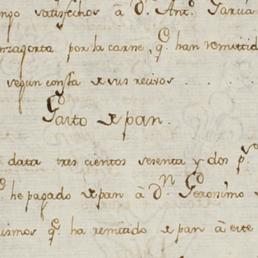 ngo satisfechos â Dn. Antº. Garcia
nzagorta por la carne, qe. han remitido
segun consta de sus recivos.
Gasto de pan.
data tres cientos setenta y dos ps.
qe. he pagado de pan â Dn. Geronimo
ismos qe. ha remitido de pan â este